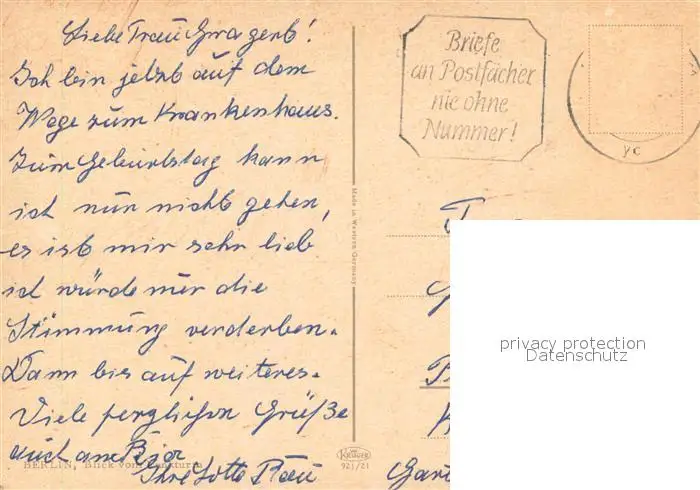 Liebe Frau Gragert!
Ich bin jetzt auf dem
Wege zum Krankenhaus.
Zum Geburtstag kann
ich nun nicht gehen,
es ist mir sehr lieb
ich würde nur die
Stimmung verderben.
Dann bis auf weiteres.
Viele herzlichen Grüße
auch an
Ihre Lotte
BERLIN, Blick vom Funkturm
Briefe
an Postfächer
nie ohne
Nummer!
yc
Made in Western Germany
KRÜGER
921/21
privacy protection
Datenschutz